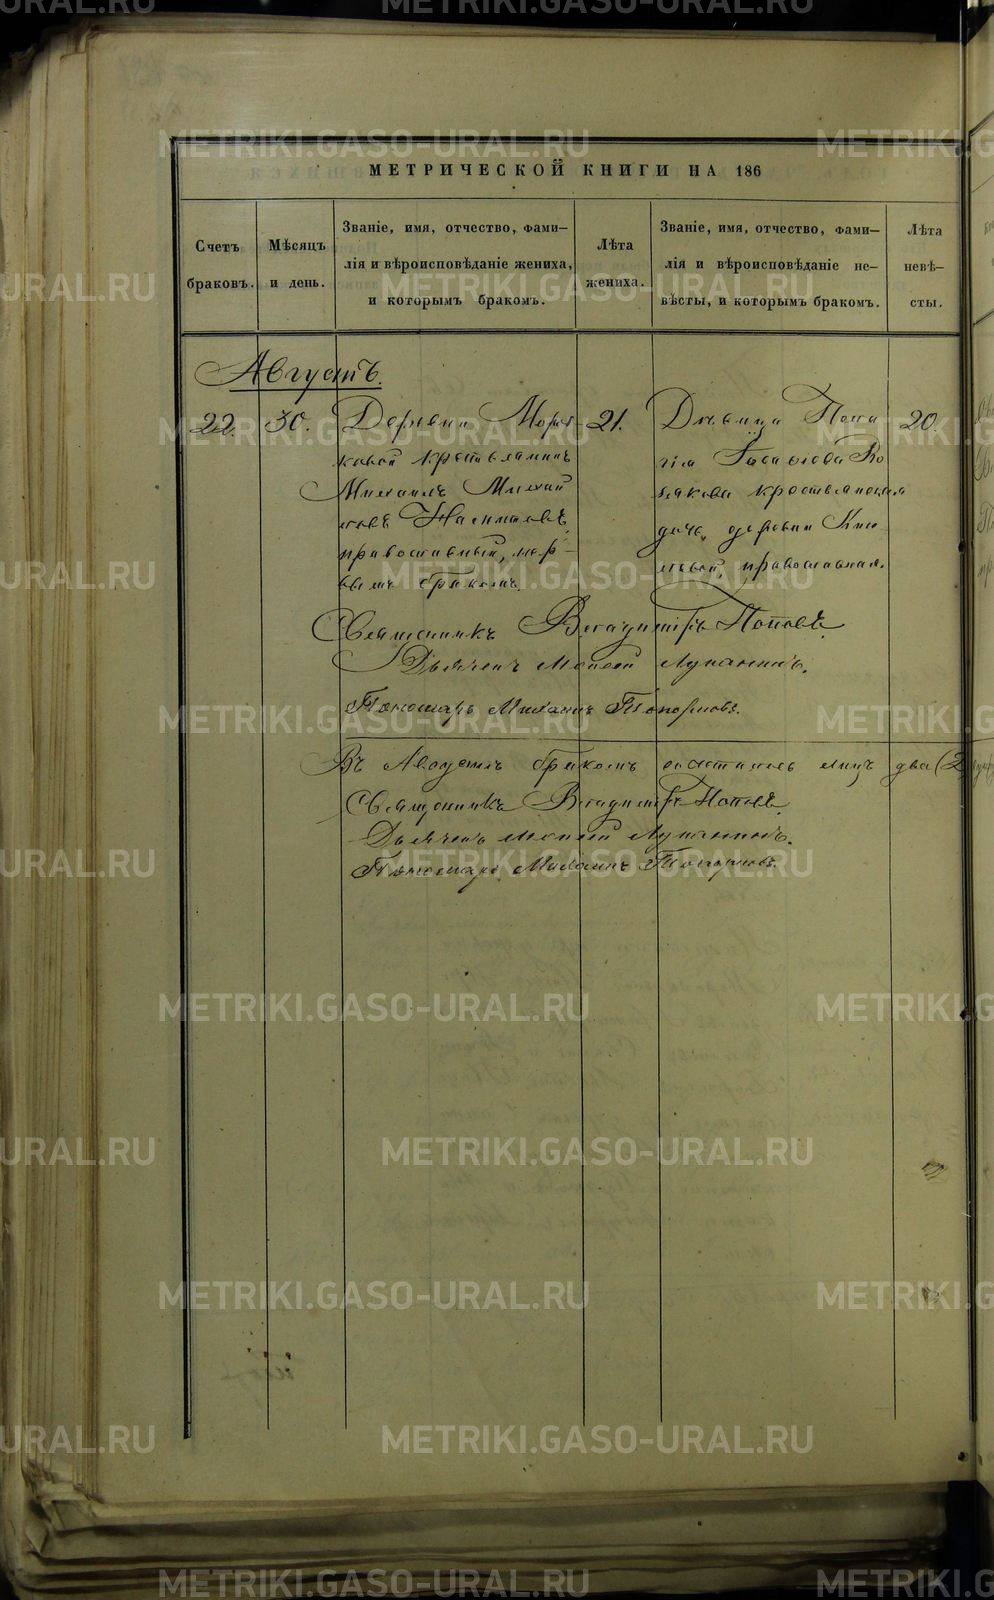 МЕТРИЧЕСКОЙ КНИГИ НА 186
Счетъ браковъ.
Мѣсяцъ и день.
Званіе, имя, отчество, фами-
лія и вѣроисповѣданіе жениха,
и которымъ бракомъ.
Лѣта жениха.
Званіе, имя, отчество, фами-
лія и вѣроисповѣданіе не-
вѣсты, и которымъ бракомъ.
Лѣта невѣ-
сты.
Августъ.
22.
30.
Деревни
крестьянинъ
Михаилъ Михаи
ловъ
православный, пер-
вымъ бракомъ.
21.
Дѣвица Пела
гія
крестьянская
дочь, деревни
православная.
20.
Священникъ Владиміръ Поповъ.
Дьячекъ Моисей Лупанинъ.
Пономарь Михаилъ Топорковъ.
Въ Августѣ бракомъ лицъ два (2
Священникъ Владиміръ Поповъ.
Дьячекъ Моисей Лупанинъ.
Пономарь Михаилъ Топорковъ.
METRIKI.GASO-URAL.RU